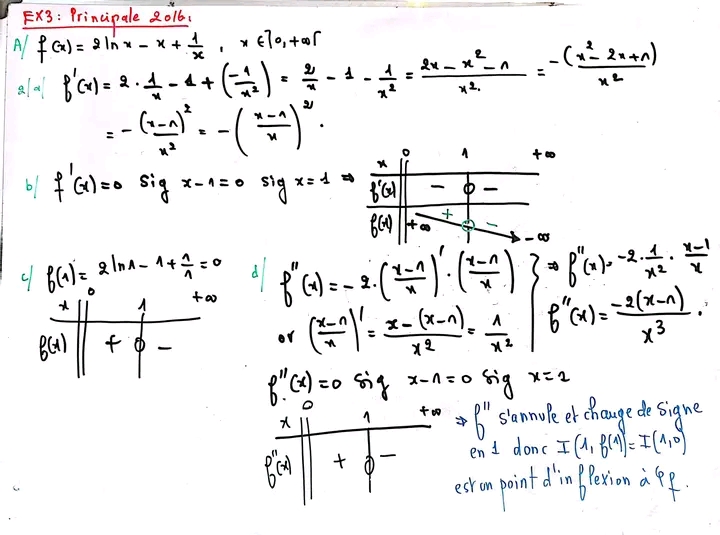 EX3: Principale 2016.
A/ f(x) = 2 ln x - x + 1/x , x ∈ ]0, +∞[
2/a/ f'(x) = 2 · 1/x - 1 + (-1/x²) = 2/x - 1 - 1/x² = (2x - x² - 1)/x² = -(x² - 2x + 1)/x²
= -(x-1)²/x² = -((x-1)/x)² .
b/ f'(x) = 0 sig x-1=0 sig x=1 ⇒
x 0 1 +∞
f'(x) - 0 -
f(x) +∞ + 0 - -∞
c/ f(1) = 2 ln 1 - 1 + 1/1 = 0
x 0 1 +∞
f(x) + 0 -
d/ f''(x) = -2 · ((x-1)/x)' · ((x-1)/x)
or ((x-1)/x)' = (x - (x-1))/x² = 1/x²
⇒ f''(x) = -2 · 1/x² · (x-1)/x
f''(x) = -2(x-1)/x³ .
f''(x) = 0 sig x-1=0 sig x=1
x 0 1 +∞
f''(x) + 0 -
⇒ f'' s'annule et change de signe
en 1 donc I(1, f(1)) = I(1,0)
est un point d'inflexion à φf.